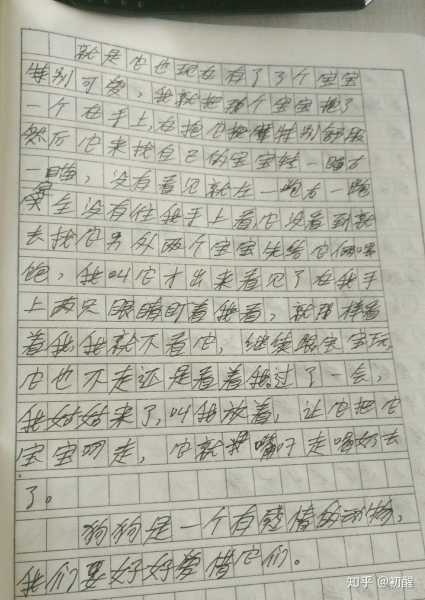 就是它也现在有了了个宝宝
特别可爱，我就把那个宝宝抱了
一个在手上，在抱它把特别舒服
然后它来找自己的宝宝转一喵右
一喵，没有看见就左一跑右一跑
完全没有往我手上看，它没看到就
去找它另外两个宝宝先给它俩喂
饱，我叫它才出来看见了在我手
上两只眼睛盯着我看，就那样看
着我，我就不看它，继续跟宝宝玩
它也不走还是看着我。过了一会，
我好好来了，叫我放着，让它把它
宝宝叼走，它就嘴叼走喂奶去
了。
狗狗是一个有感情的动物，
我们要好好爱惜它们。
知乎 @初醒